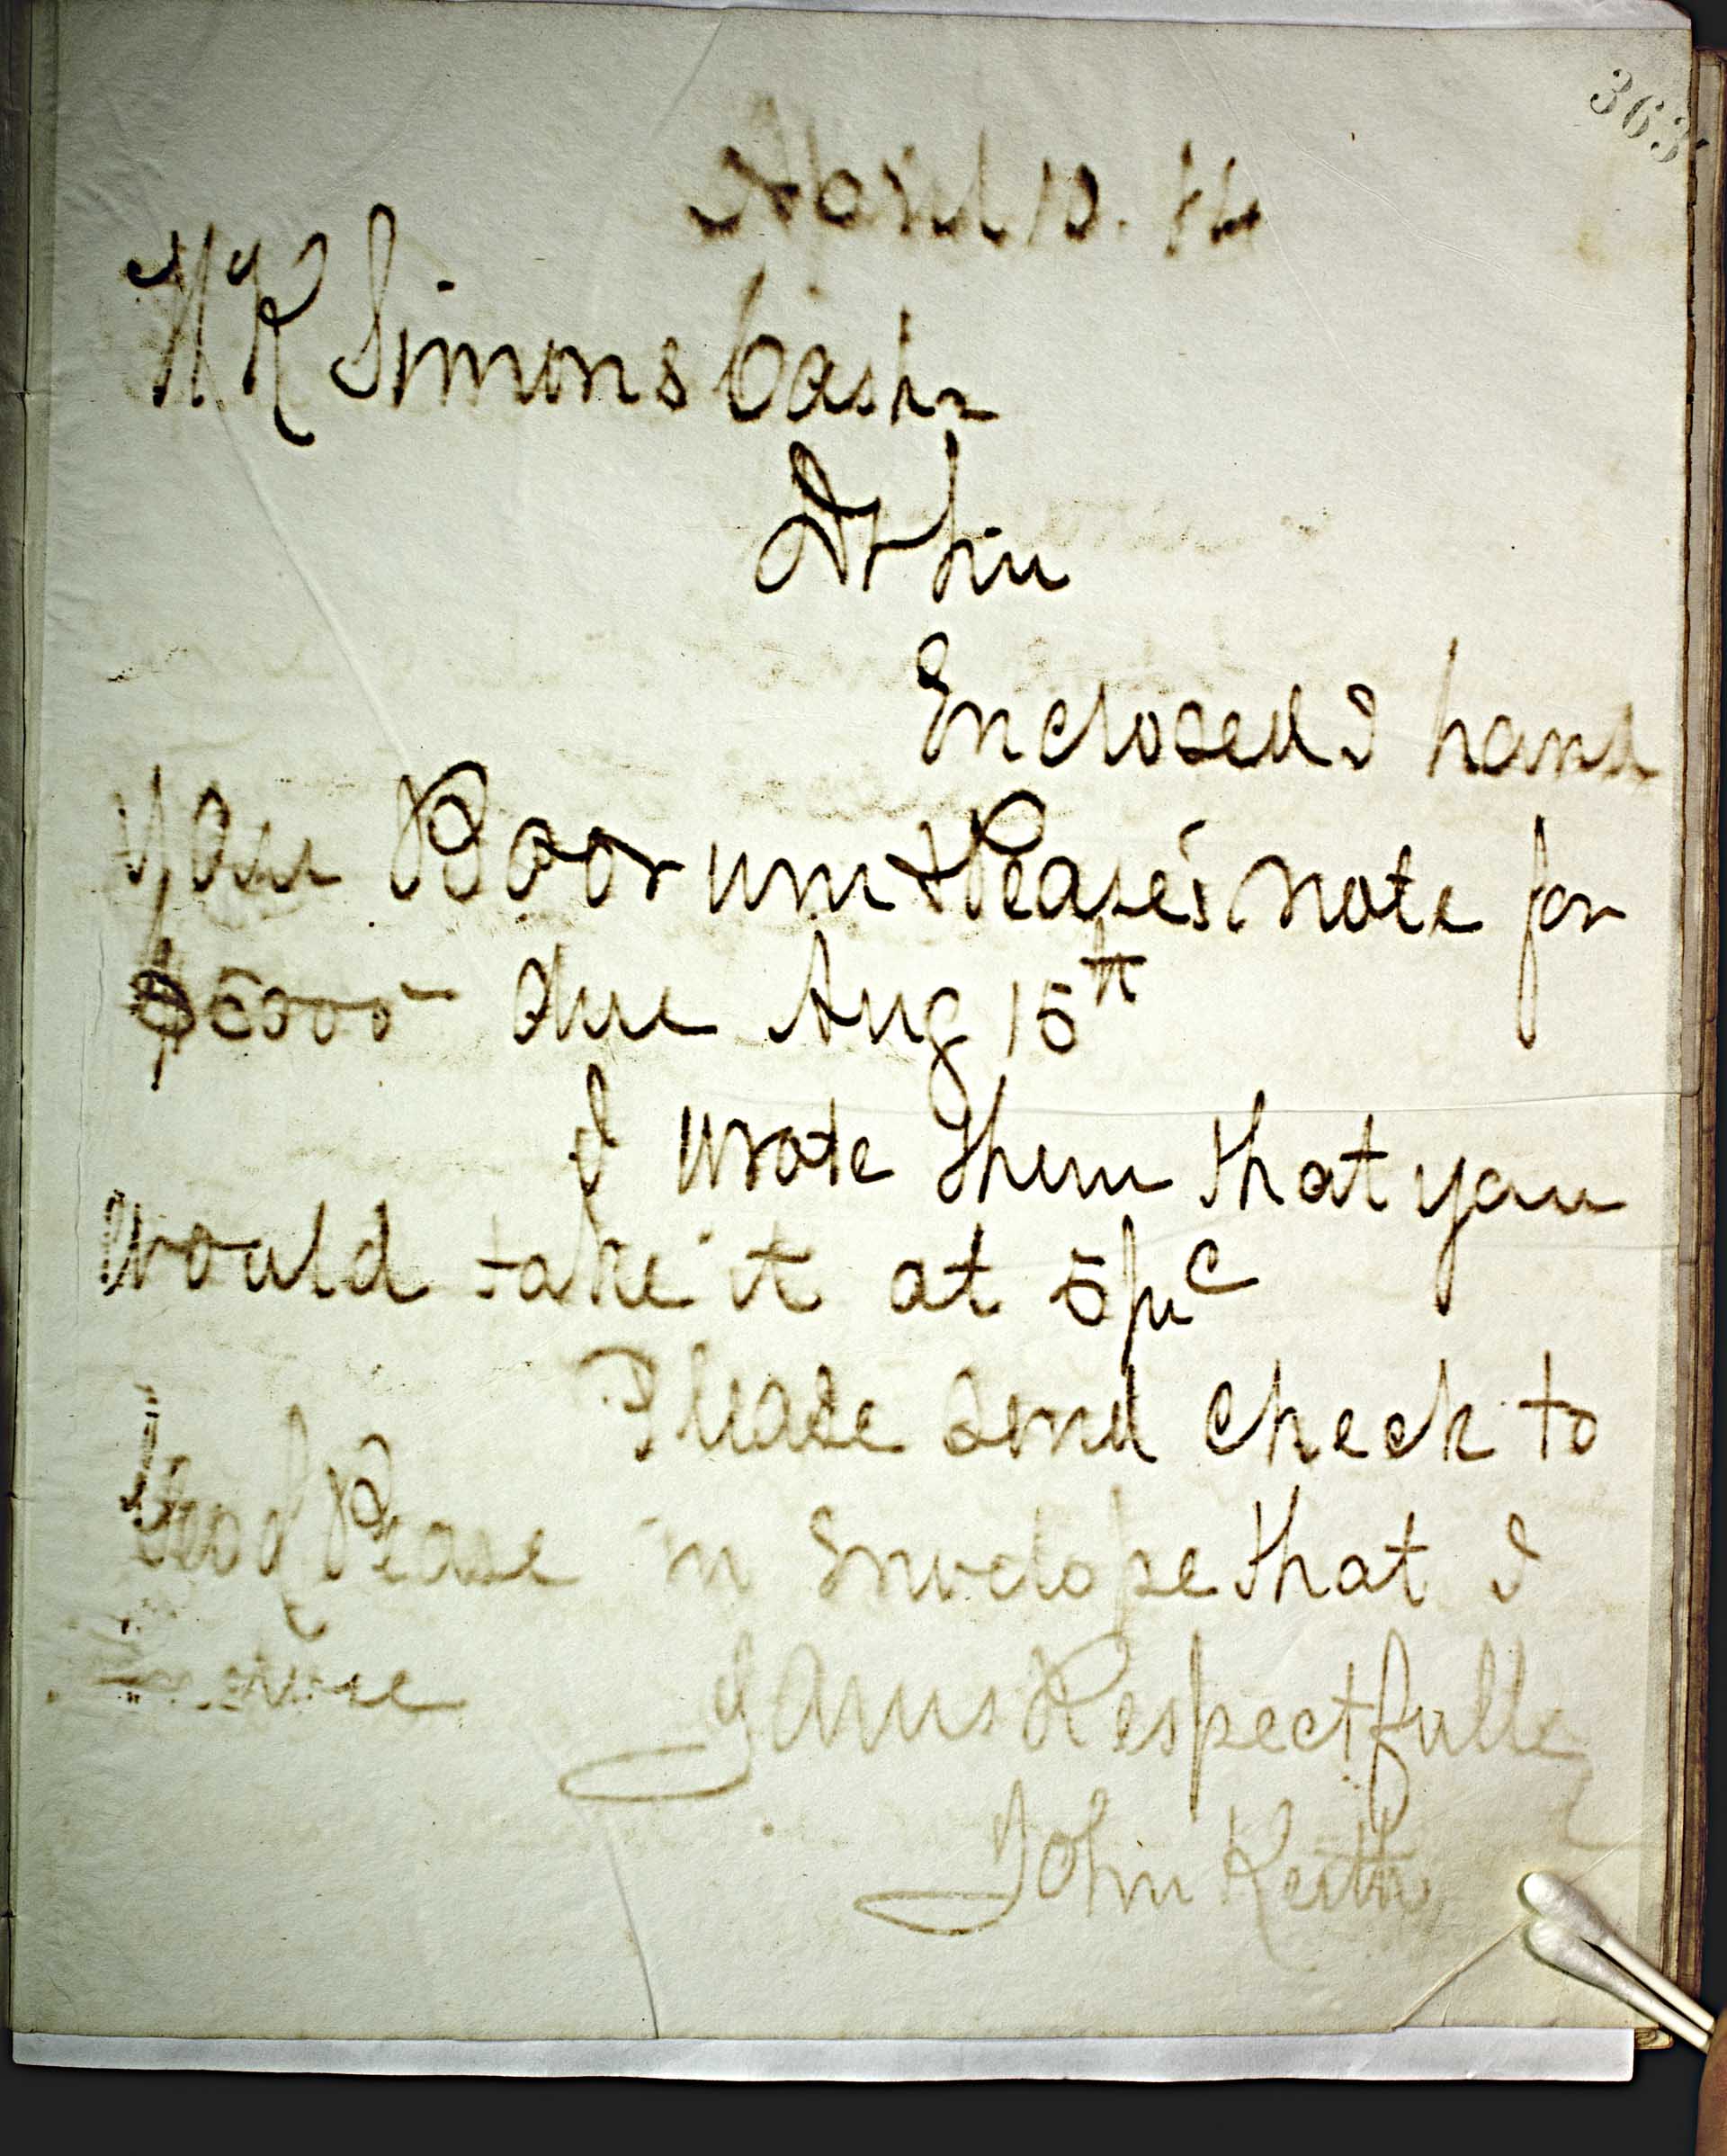 363
April 10. 84
W K Simons Cashr
Dr Sir
Enclosed I hand
you Boorum & Pease's note for
$5000 due Aug 15th
I wrote them that you
would take it at 5 pr c
Please send check to
Pease in Envelope that I
Yours Respectfully
John Keith